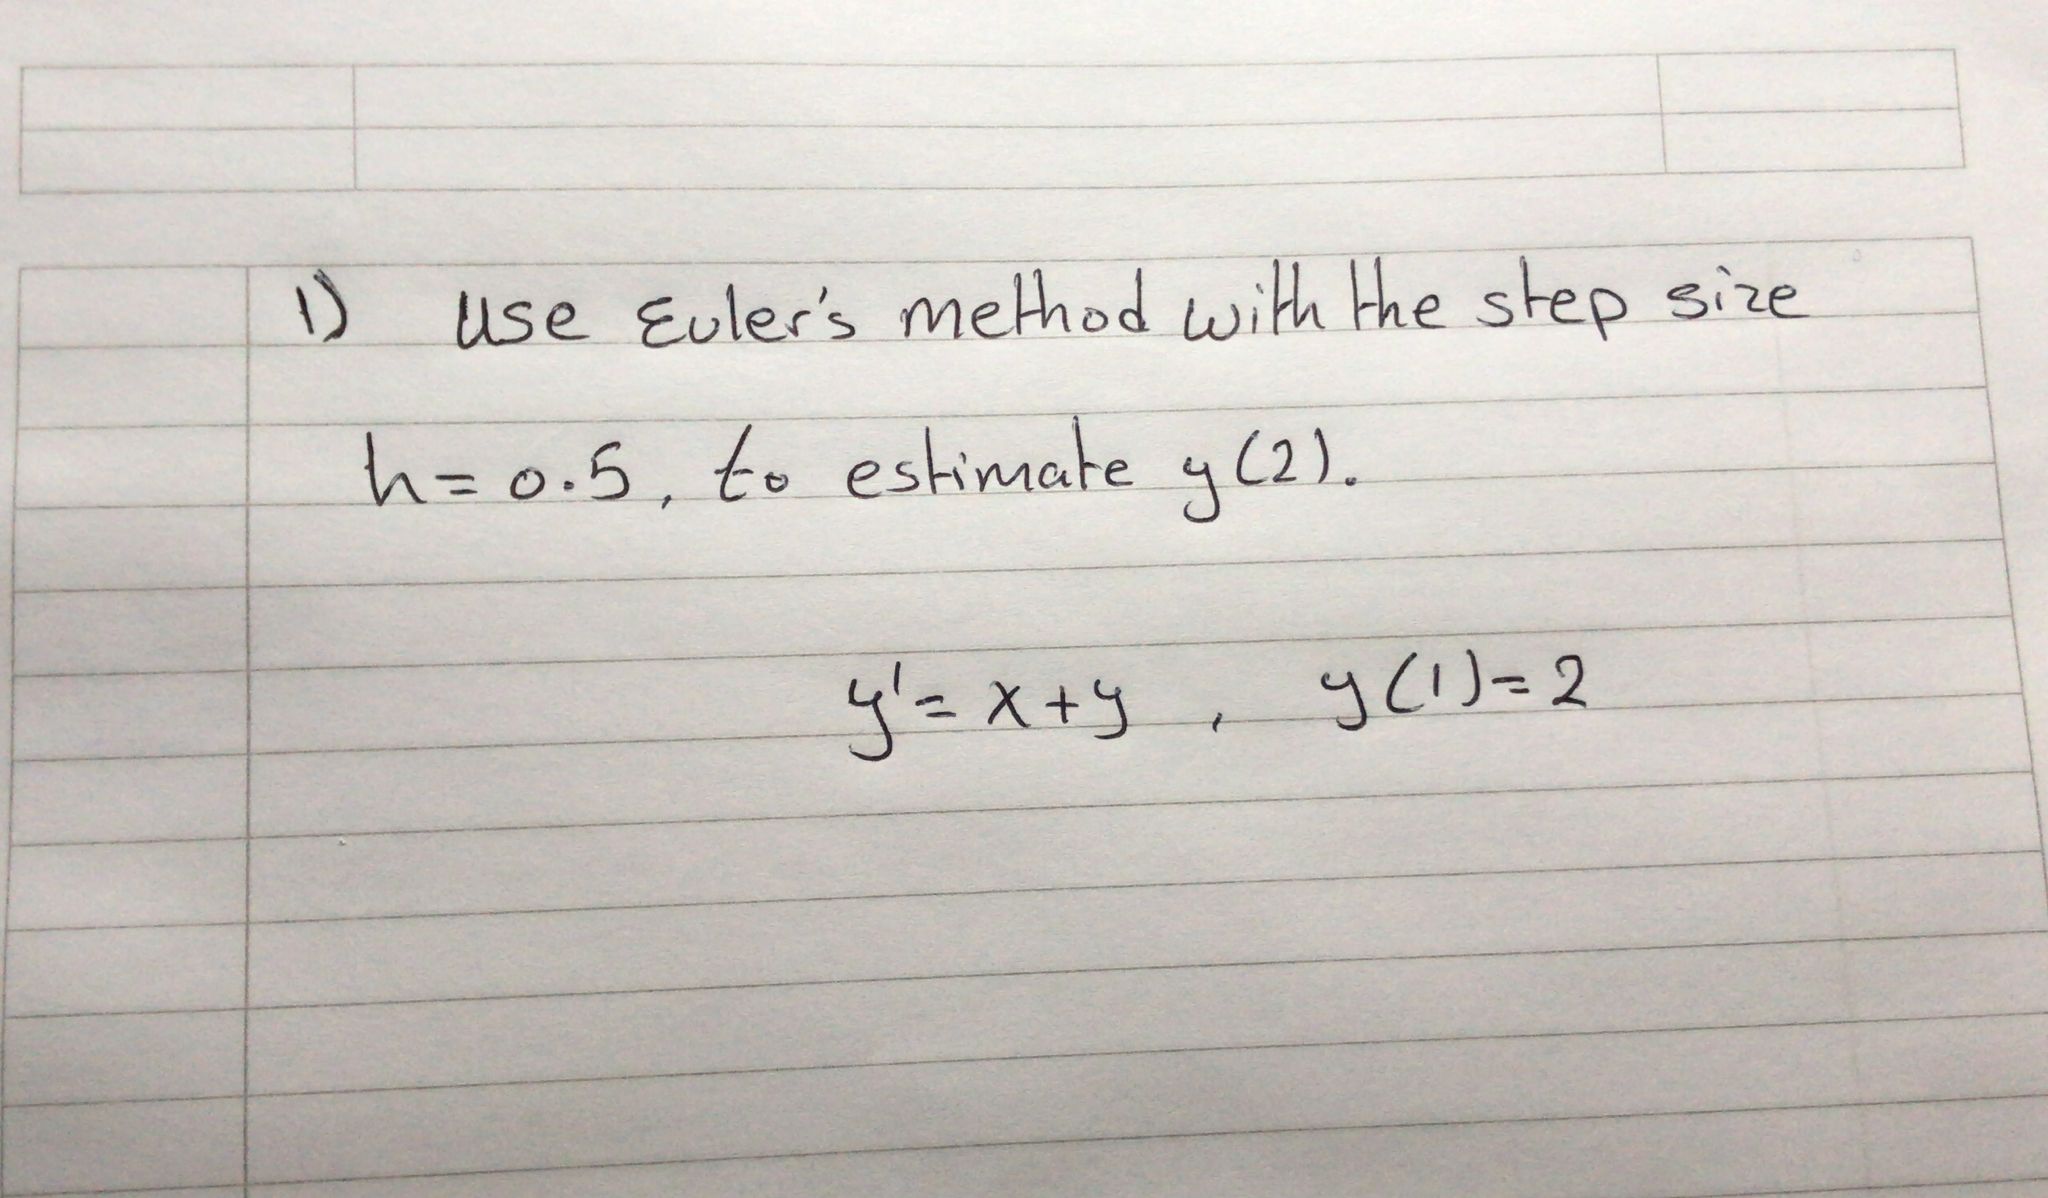 1) Use Euler's method with the step size
h=0.5, to estimate y(2).
y'= x+y , y(1)=2